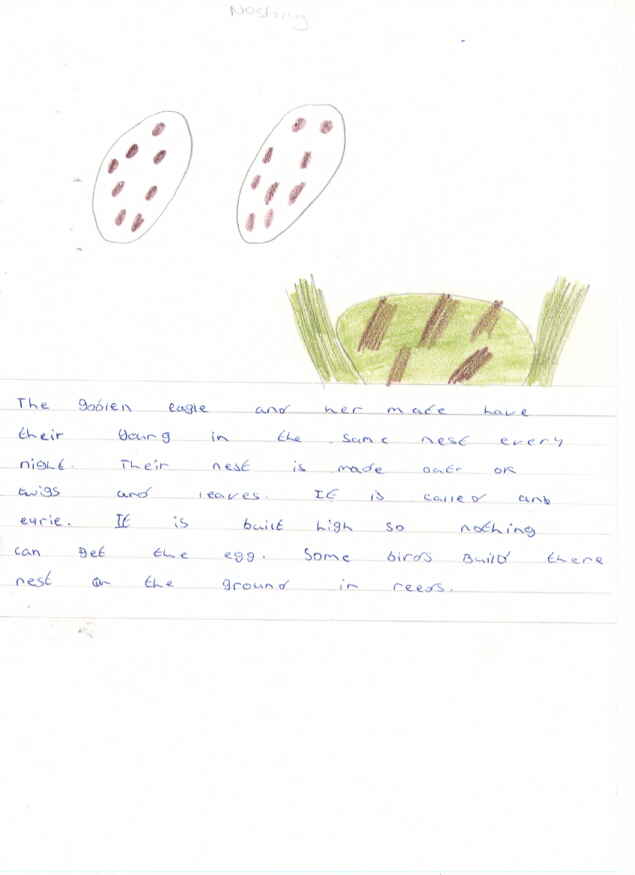 Nesting
The golden eagle and her mate have
their young in the same nest every
night. Their nest is made out or
twigs and leaves. It is called and
eyrie. It is built high so nothing
can get the egg. Some birds build there
nest on the ground in reeds.